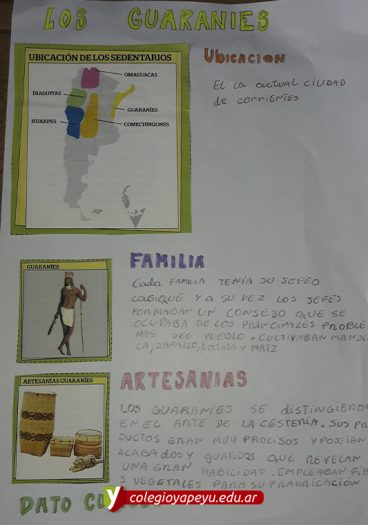 LOS GUARANIES
UBICACIÓN DE LOS SEDENTARIOS
OMAGUACAS
DIAGUITAS
GUARANÍES
HUARPES
COMECHINGONES
UBICACION
EL LA actual CIUDAD
de corrientes
GUARANÍES
FAMILIA
Cada FAMILIA TENIA SU JEFEO
CACIQUE Y A SU VEZ LOS JEFES
FORMABAN UN CONSEJO QUE SE
OCUPABA DE LOS PRINCIPALES PROBLE
MAS DEL PUEBLO. CULTIVABAN MANDI
CA, ZAPALLO, BATATA Y MAIZ
ARTESANÍAS GUARANÍES
ARTESANIAS
LOS GUARANIES SE DISTINGIERO
EN EL ARTE DE LA CESTERIA, SUS PR
DUCTOS ERAN MUY PROLISOS Y POSEIAN
ACABADOS Y GUARDAS QUE REVELAN
UNA GRAN HABILIDAD. EMPLEABAN FIB
S VEGETALES PARA SU FABRICACIÓN
DATO
colegioyapeyu.edu.ar